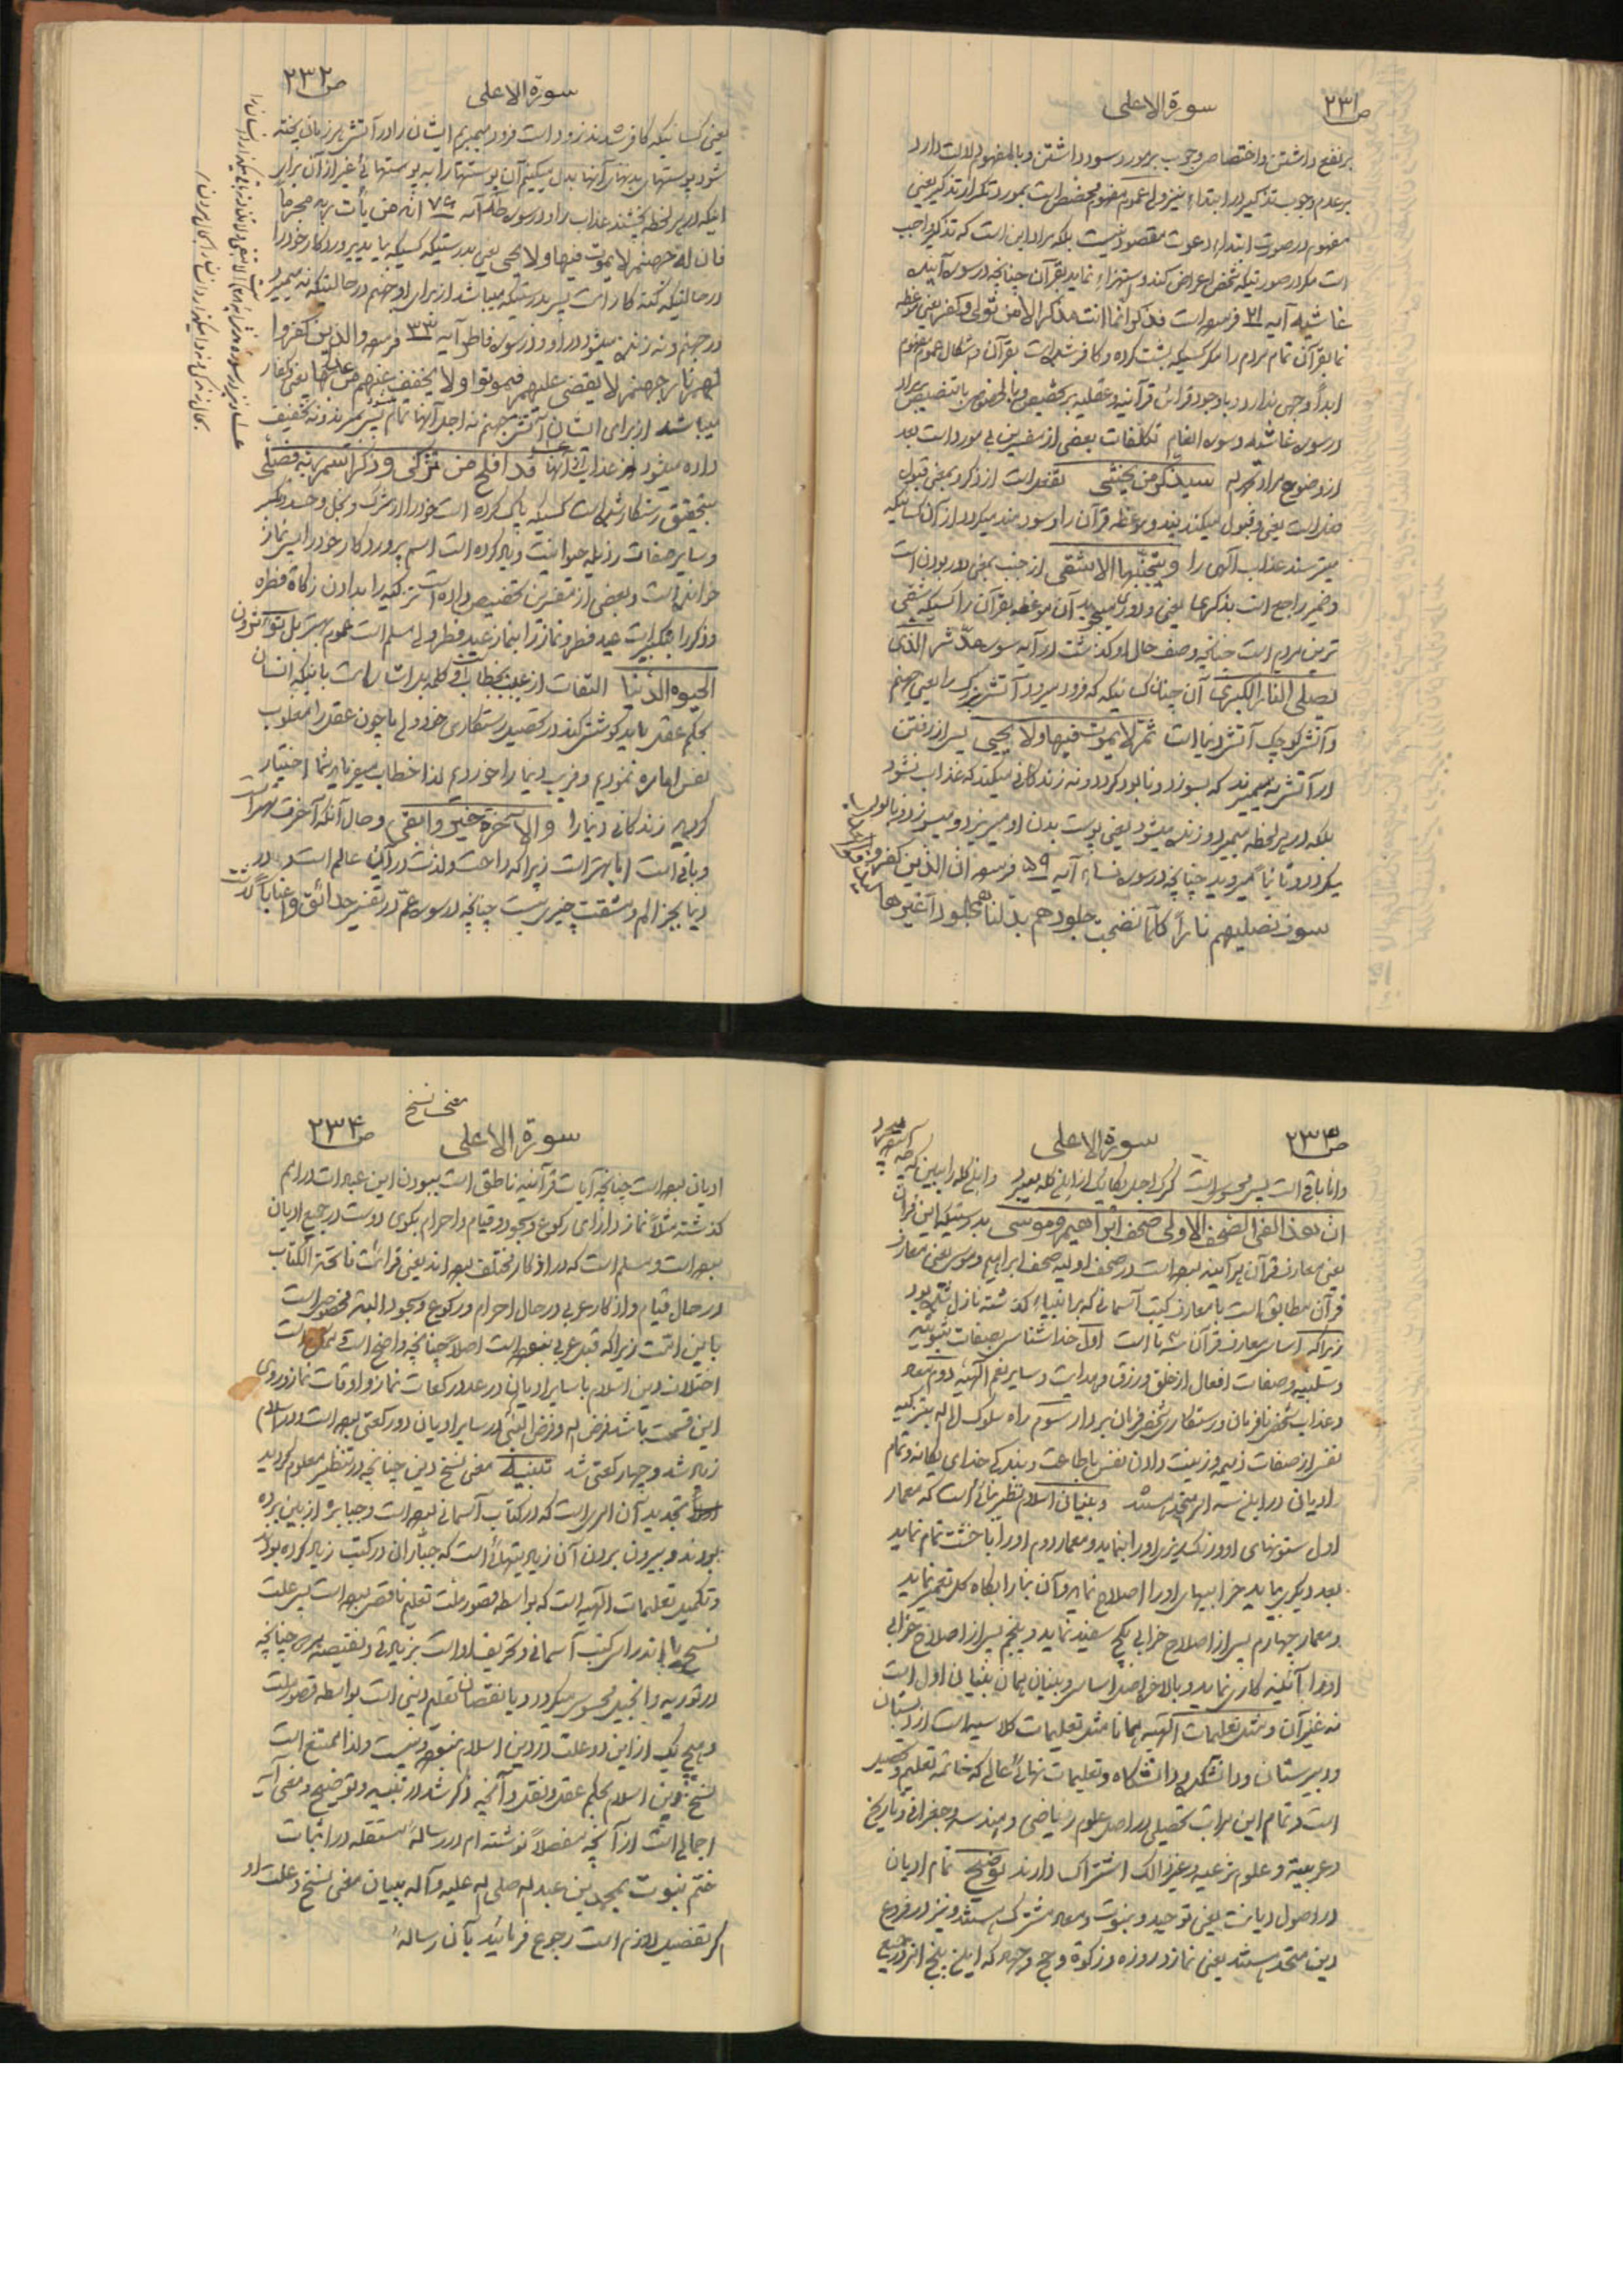 ص۲۳۱
سورة الاعلی
بر نفع داشتن و اختصاص وجوب بمورد سود داشتن و بالمفهوم دلالت دارد
بر عدم وجوب تذکیر در ابتداء نیز ولی عموم مفهوم مخصص است بمورد تکرار تذکیر یعنی
مفهوم در صورت ابتداء دعوت مقصود نیست بلکه مراد این است که تذکیر واجب
است مگر در صورتیکه شخص اعراض کند و استهزاء نماید بقرآن چنانچه در سوره آینده
غاشیه آیه ۲۱ فرموده است فذکر انما انت مذکر الا من تولی و کفر یعنی موعظه
نما بقرآن تمام مردم را مگر کسیکه پشت کرده و کافر شده است بقرآن و اشکال عموم مفهوم
ابداً وجهی ندارد با وجود قرائن قرآنیه و عقلیه بر تخصیص و بالخصوص با تنصیص بمراد
در سوره غاشیه و سوره انعام تکلفات بعضی از مفسرین بی مورد است بعد
از وضوح مراد بقرینه سیذکر من یخشی تفعل است از ذکر و بمعنی قبول
ضد است یعنی و قبول میکند پند و موعظه قرآن را و سودمند میگردد از آن کسانیکه
میترسند عذاب الهی را و یتجنبها الاشقی از جنب بمعنی دور بودن است
و ضمیر راجع است بذکری یعنی و دوری میجوید آن موعظه بقرآن را کسیکه شقی
ترین مردم است چنانچه وصف حال او گذشت در آیه سوره مدثر الذی
یصلی النار الکبری آن چنان کسانیکه که فرود میرود آتش بزرگ را یعنی جهنم
و آتش کوچک آتش دنیا است ثم لا یموت فیها و لا یحیی پس از رفتن
در آتش نه میمیرند که بسوزد و نابود گردد و نه زندگانی میکند که عذاب نشود
بلکه در هر لحظه میمیرد و زنده میشود یعنی پوست بدن او میریزد و میسوزد و نابود
میگردد و ثانیاً میروید چنانچه در سوره نساء آیه ۵۹ فرموده ان الذین کفروا
سوف نصلیهم ناراً کلما نضجت جلودهم بدلناهم جلوداً غیرها
ص۲۳۲
سورة الاعلی
یعنی کسانیکه کافر شدند زود است فرود میبریم ایشان را در آتش هر زمان پخته
شود پوستهای بدنهای آنها بدل میکنیم آن پوستها را به پوستهائی غیر از آن برای
اینکه در هر لحظه بچشند عذاب را و در سوره طه آیه ۷۴ انه من یأت ربه مجرماً
فان له جهنم لا یموت فیها و لا یحیی یعنی بدرستیکه کسیکه بیاید پروردگار خود را
در حالتیکه گنه کار است پس بدرستیکه میباشد از برای او جهنم در حالتیکه نه میمیرد
در جهنم و نه زنده میشود در او و در سوره فاطر آیه ۳۳ فرموده و الذین کفروا
لهم نار جهنم لا یقضی علیهم فیموتوا و لا یخفف عنهم من عذابها یعنی کفار
میباشد از برای ایشان آتش جهنم نه اجل آنها تمام میشود بمیرند و نه تخفیف
داده میشود از عذاب آنها قد افلح من تزکی و ذکر اسم ربه فصلی
بتحقیق رستگار شده است کسیکه پاک کرده است خود را از شرک و بخل و حسد و کبر
و سایر صفات رذیله حیوانیت و یاد کرده است اسم پروردگار خود را پس نماز
خوانده است و بعضی از مفسرین تخصیص داده است تزکیه را بدادن زکاة فطره
و ذکر را بتکبیرات عید فطر و نماز را بنماز عید فطر ولی مسلم است عموم بهتر بل تؤثرون
الحیوة الدنیا التفات از غیبت بخطاب و کلمه بل اشاره است باینکه انسان
بحکم عقل باید کوشش کند در تحصیل رستگاری خود ولی ما چون عقل را مغلوب
نفس اماره نمودیم و فریب دنیا را خوردیم لذا خطاب میفرماید شما اختیار
کردید زندگانی دنیا را و الآخرة خیر و ابقی و حال آنکه آخرت بهتر است
و باقی است اما بهتر است زیرا که راحت و لذت در آن عالم است و در
دنیا بجز الم و مشقت چیزی نیست چنانچه در سوره عم در تفسیر حدائق و اعناباً گذشت
ص۲۳۳
سورة الاعلی
و اما باقی است پس محسوس است گرگ اجل یکایک از این گله میبرد و این گله را ببین که
ان هذا لفی الصحف الاولی صحف ابراهیم و موسی بدرستیکه این قرآن
یعنی معارف قرآن هر آینه بوده است در صحف اولیه صحف ابراهیم و موسی یعنی معارف
قرآن مطابق است با معارف کتب آسمانی که بر انبیاء گذشته نازل شده بود
زیرا که اساس معارف قرآن سه تا است اول خدا شناسی بصفات ثبوتیه
و سلبیه و صفات افعال از خلق و رزق و هدایت و سایر نعم الهیه دوم معاد
و عذاب شخص نافرمان و رستگاری شخص فرمان بردار سوم راه سلوک الی اله بتزکیه
نفس از صفات ذمیمه و زینت دادن نفس باطاعت و بندگی خدای یگانه و تمام
ادیان در این سه امر متحد هستند و بنیان اسلام نظیر بنائی است که معمار
اول ستونهای او و رنگ ریزی او را بنماید و معمار دوم او را با خشت تمام نماید
بعد دیگری بیاید خرابیهای او را اصلاح نماید و آن بنا را بکاه گل تعمیر نماید
و معمار چهارم پس از اصلاح خرابی بگچ سفید نماید و پنجم پس از اصلاح خرابی
او را آئینه کاری نماید و بالاخره اصل اساس و بنیان همان بنیان اول است
نه غیر آن و مثل تعلیمات الهیه همانا مثل تعلیمات کلاسیه است از دبستان
و دبیرستان و دانشکده و دانشگاه و تعلیمات نهائی عالی که خاتمه تعلیم و تحصیل
است و تمام این مراتب تحصیلی در اصل علوم ریاضی و هندسه و جغرافی و تاریخ
و عربیت و علوم شرعیه و غیر ذالک اشتراک دارند توضیح تمام ادیان
در اصول دیانت یعنی توحید و نبوت و معاد مشترک هستند و نیز در فروع
دین متحد هستند یعنی نماز و روزه و زکوة و حج و جهاد که این پنج امر در جمیع
معنی نسخ
ص۲۳۴
سورة الاعلی
ادیان بوده است چنانچه آیات قرآنیه ناطق است ببودن این عبادات در امم
گذشته مثلاً نماز دارای رکوع و سجود و قیام و احرام بکوی دوست در جمیع ادیان
بوده است و مسلم است که در اذکار مختلف بوده اند یعنی قرائت فاتحة الکتاب
در حال قیام و اذکار عربی در حال احرام و رکوع و سجود البته مخصوص است
باین امت زیرا که قبل عربی نبوده است اصلاً چنانچه واضح است و ممکن است
اختلاف دین اسلام با سایر ادیان در عدد رکعات نماز و اوقات نماز و روی
این قسمت باشد فرض اله و فرض النبی در سایر ادیان دو رکعتی بوده است و در اسلام
زیاد شد و چهار رکعتی شد تنبیه معنی نسخ دین چنانچه در تنظیر معلوم گردید
تجدید آن امری است که در کتاب آسمانی بوده است و جبابره از بین برده
بودند و بیرون بردن آن زیادیتهائی است که جباران در کتب زیاد کرده بودند
و تکمیل تعلیمات الهیه است که بواسطه قصور ملت تعلیم ناقص بوده است پس علت
نسخ یا اندراس کتب آسمانی و تحریف او است بزیادتی و نقیصه بردن چنانچه
در توریه و انجیل محسوس میگردد و یا نقصان تعلیم دینی است بواسطه قصور ملت
و هیچ یک از این دو علت در دین اسلام نبوده و نیست و لذا ممتنع است
نسخ دین اسلام بحکم عقل و نقل و آنچه ذکر شد در تنبیه و توضیح و معنی آیه
اجمالی است از آنچه مفصلاً نوشته ام در رساله مستقله در اثبات
ختم نبوت بمحمد بن عبد اله صلی اله علیه و آله ببیان معنی نسخ و علت او
اگر تفصیل لازم است رجوع فرمائید بآن رساله